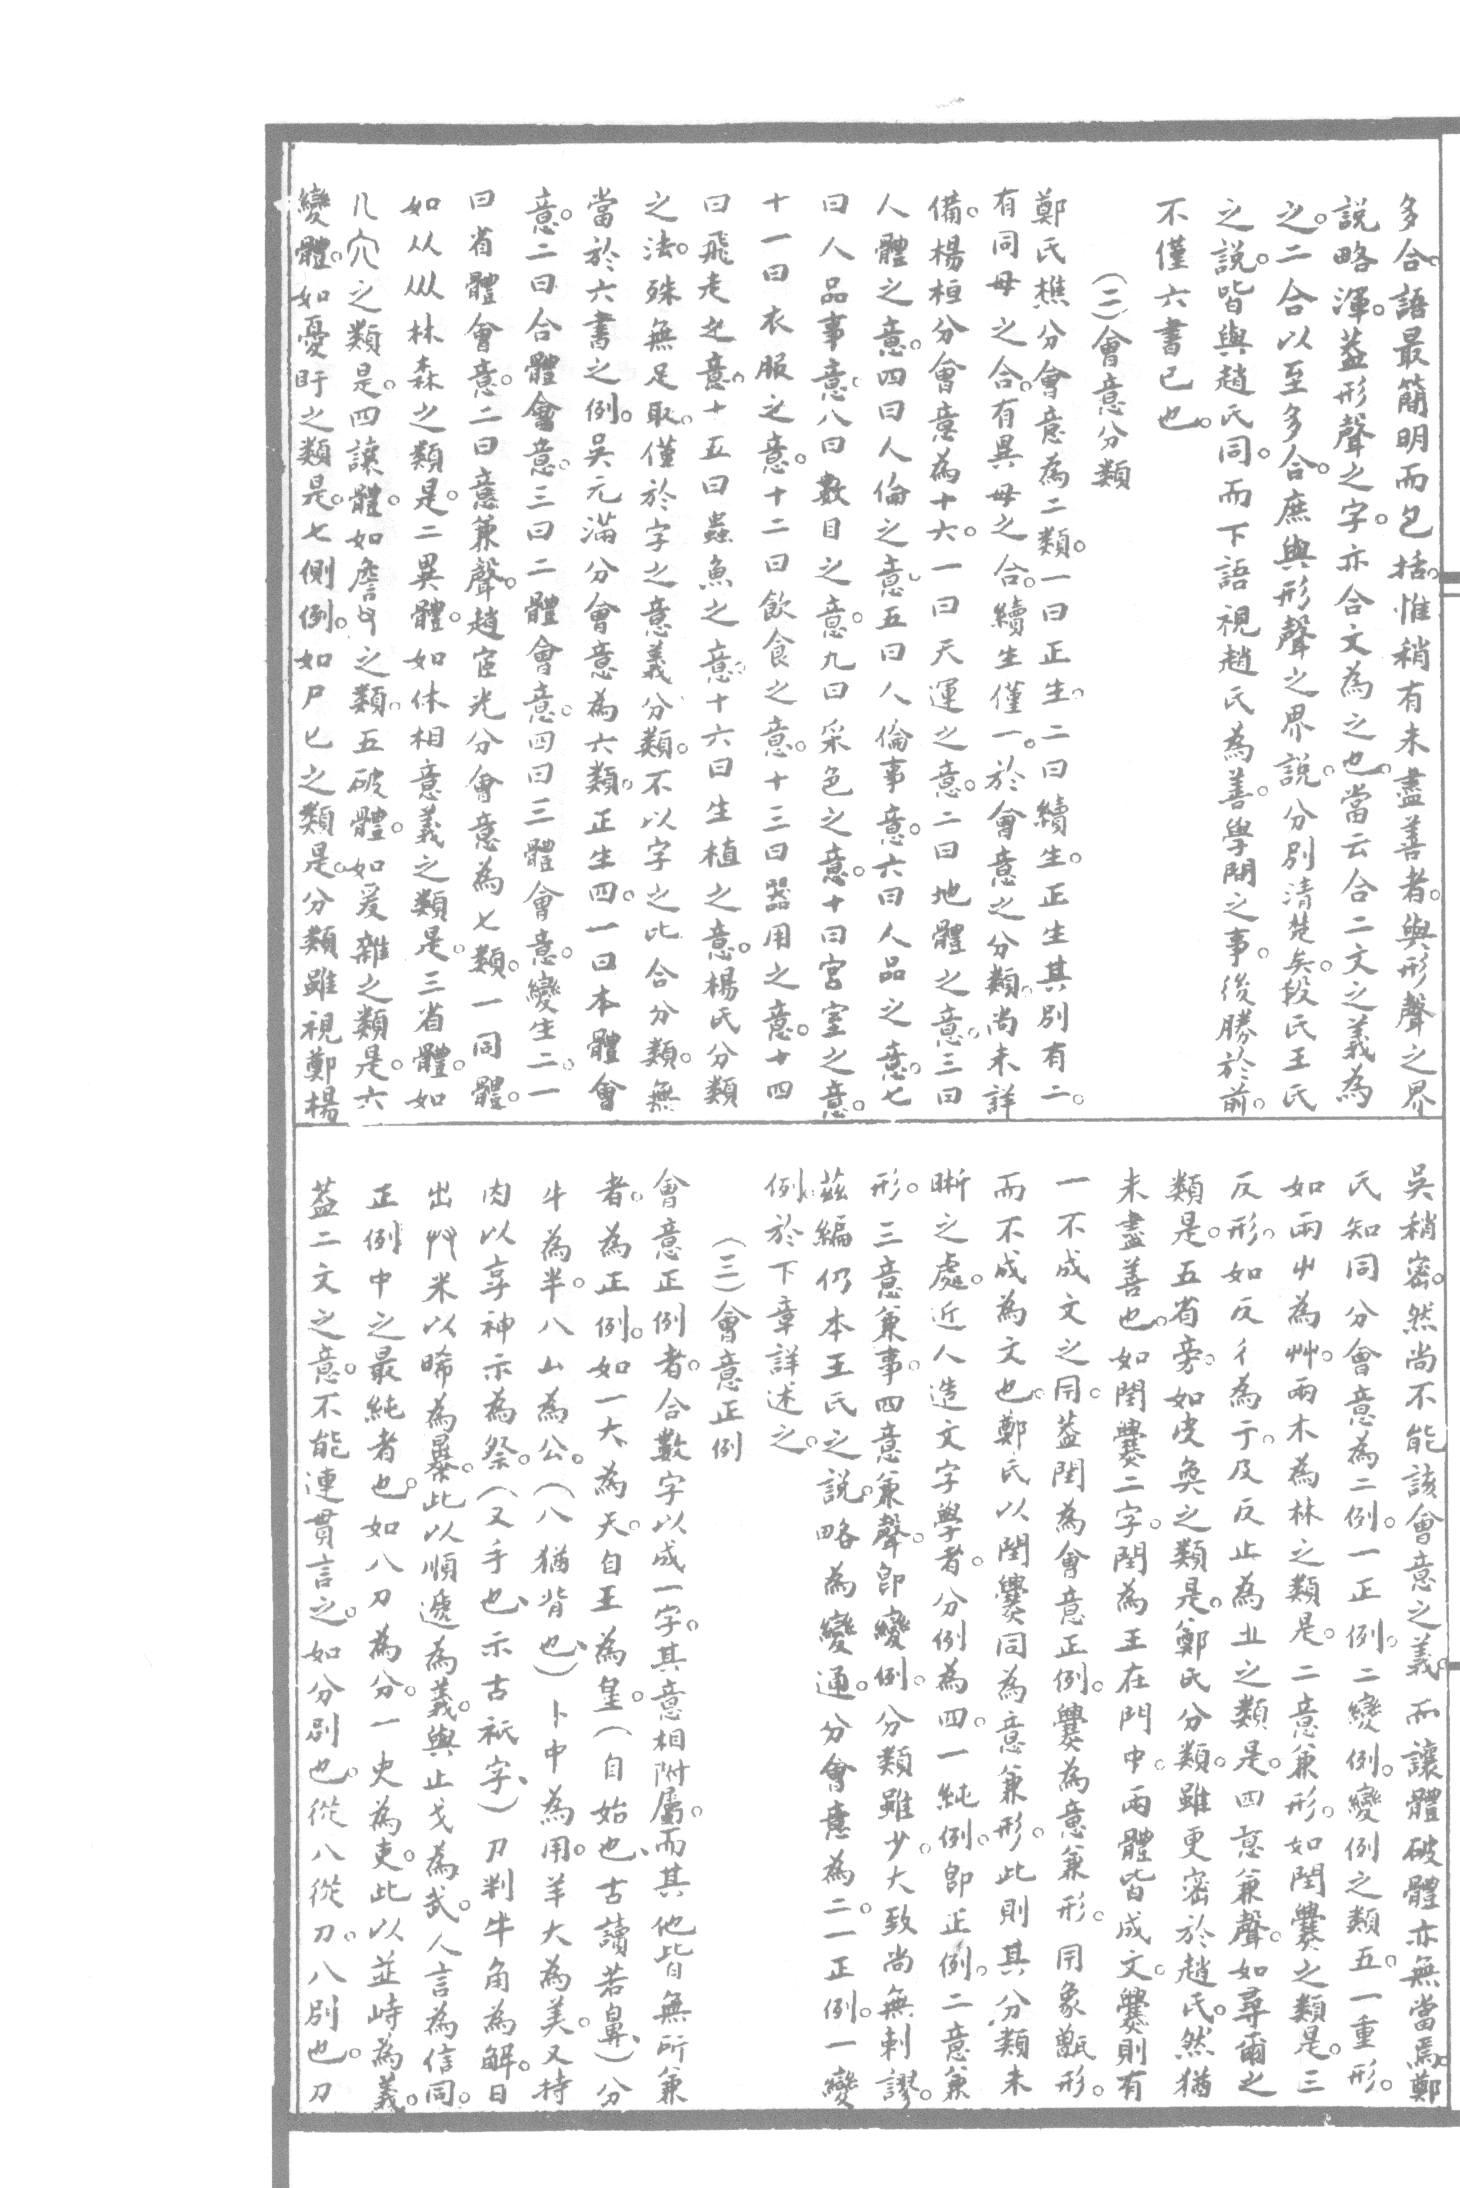 多合。語最簡明而包括。惟稍有未盡善者。與形聲之界
說略渾。蓋形聲之字。亦合文為之也。當云合二文之義為
之。二合以至多合。庶與形聲之界說。分別清楚矣。段氏王氏
之說。皆與趙氏同。而下語視趙氏為善。學問之事。後勝於前。
不僅六書已也。
(二)會意分類
鄭氏樵分會意為二類。一曰正生。二曰續生。正生其別有二。
有同母之合。有異母之合。續生僅一。於會意之分類。尚未詳
備。楊桓分會意為十六。一曰天運之意。二曰地體之意。三曰
人體之意。四曰人倫之意。五曰人倫事意。六曰人品之意。七
曰人品事意。八曰數目之意。九曰采色之意。十曰宮室之意。
十一曰衣服之意。十二曰飲食之意。十三曰器用之意。十四
曰飛走之意。十五曰蟲魚之意。十六曰生植之意。楊氏分類
之法。殊無足取。僅於字之意義分類。不以字之比合分類。無
當於六書之例。吳元滿分會意為六類。正生四。一曰本體會
意。二曰合體會意。三曰二體會意。四曰三體會意。變生二。一
曰省體會意。二曰意兼聲。趙宧光分會意為七類。一同體。
如从从林森之類是。二異體。如休相意義之類是。三省體。如
几穴之類是。四讓體。如詹之類。五破體。如爰雜之類是。六
變體。如憂盱之類是。七側例。如尸匕之類是。分類雖視鄭楊
吳稍密。然尚不能該會意之義。而讓體破體亦無當焉。鄭
氏知同分會意為二例。一正例。二變例。變例之類五。一重形。
如兩屮為艸。兩木為林之類是。二意兼形。如閏爨之類是。三
反形。如反彳為亍。及反止為之類是。四意兼聲。如尋爾之
類是。五省旁。如皮奐之類是。鄭氏分類。雖更密於趙氏。然猶
未盡善也。如閏爨二字。閏為王在門中。兩體皆成文。爨則有
一不成文之。蓋閏為會意正例。爨為意兼形。象甑形。
而不成為文也。鄭氏以閏爨同為意兼形。此則其分類未
晰之處。近人造文字學者。分例為四。一純例。即正例。二意兼
形。三意兼事。四意兼聲。即變例。分類雖少。大致尚無剌謬。
茲編仍本王氏之說。略為變通。分會意為二。一正例。一變
例。於下章詳述之。
(三)會意正例
會意正例者。合數字以成一字。其意相附屬。而其他皆無所兼
者。為正例。如一大為天。自王為皇。(自始也、古讀若鼻、)分
牛為半。八厶為公。(八猶背也、)卜中為用。羊大為美。又持
肉以享神示為祭。(又手也、示古祇字、)刀判牛角為解。日
出廾米以晞為暴。此以順遞為義。與止戈為武。人言為信同。
正例中之最純者也。如八刀為分。一史為吏。此以並峙為義。
蓋二文之意。不能連貫言之。如分別也。從八從刀。八別也。刀